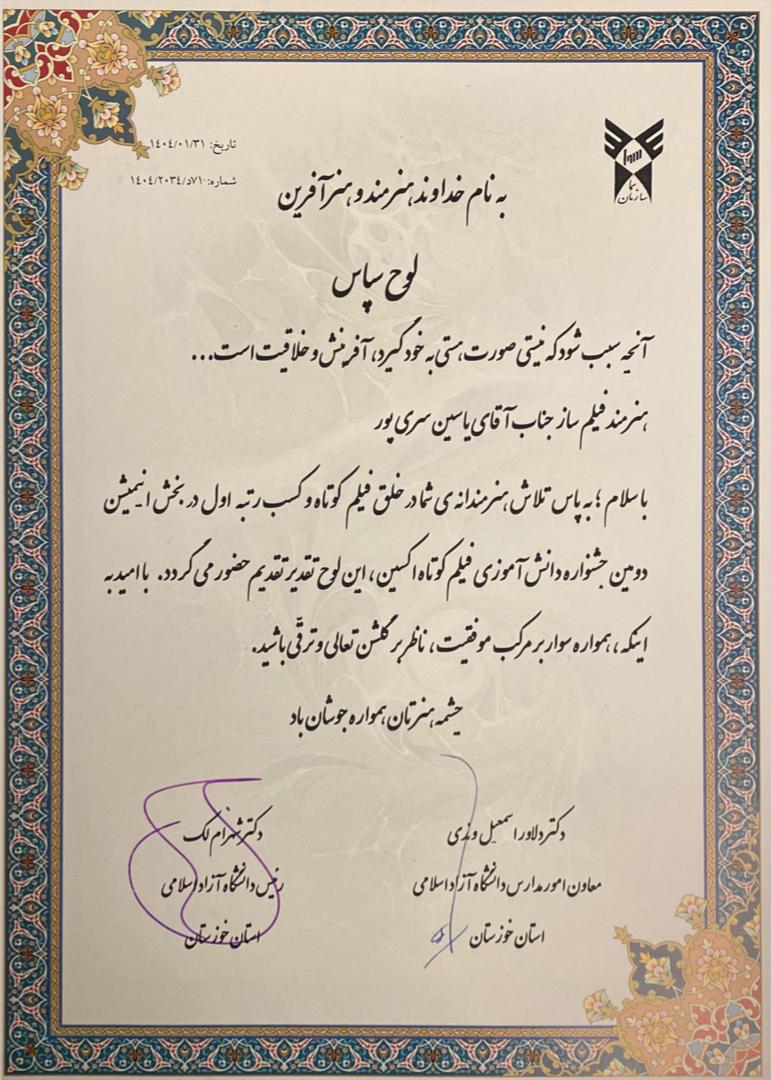 تاریخ: ۱۴۰۴/۰۱/۳۱
شماره: ۷۱د/۱۴۰۴/۲۰۳۴
سما
سازمان سما
به نام خداوند هنرمند و هنر آفرین
لوح سپاس
آنچه سبب شود که نیستی صورت هستی به خود گیرد، آفرینش و خلاقیت است...
هنرمند فیلم ساز جناب آقای یاسین سری پور
با سلام ؛ به پاس تلاش هنرمندانه ی شما در خلق فیلم کوتاه و کسب رتبه اول در بخش انیمیشن
دومین جشنواره دانش آموزی فیلم کوتاه اکسین ، این لوح تقدیر تقدیم حضور می گردد. با امید به
اینکه ، همواره سوار بر مرکب موفقیت ، ناظر بر گلشن تعالی و ترقّی باشید.
چشمه هنرتان همواره جوشان باد
دکتر دلاور اسمعیل وندی
معاون امور مدارس دانشگاه آزاد اسلامی
استان خوزستان
دکتر شهرام لک
رئیس دانشگاه آزاد اسلامی
استان خوزستان